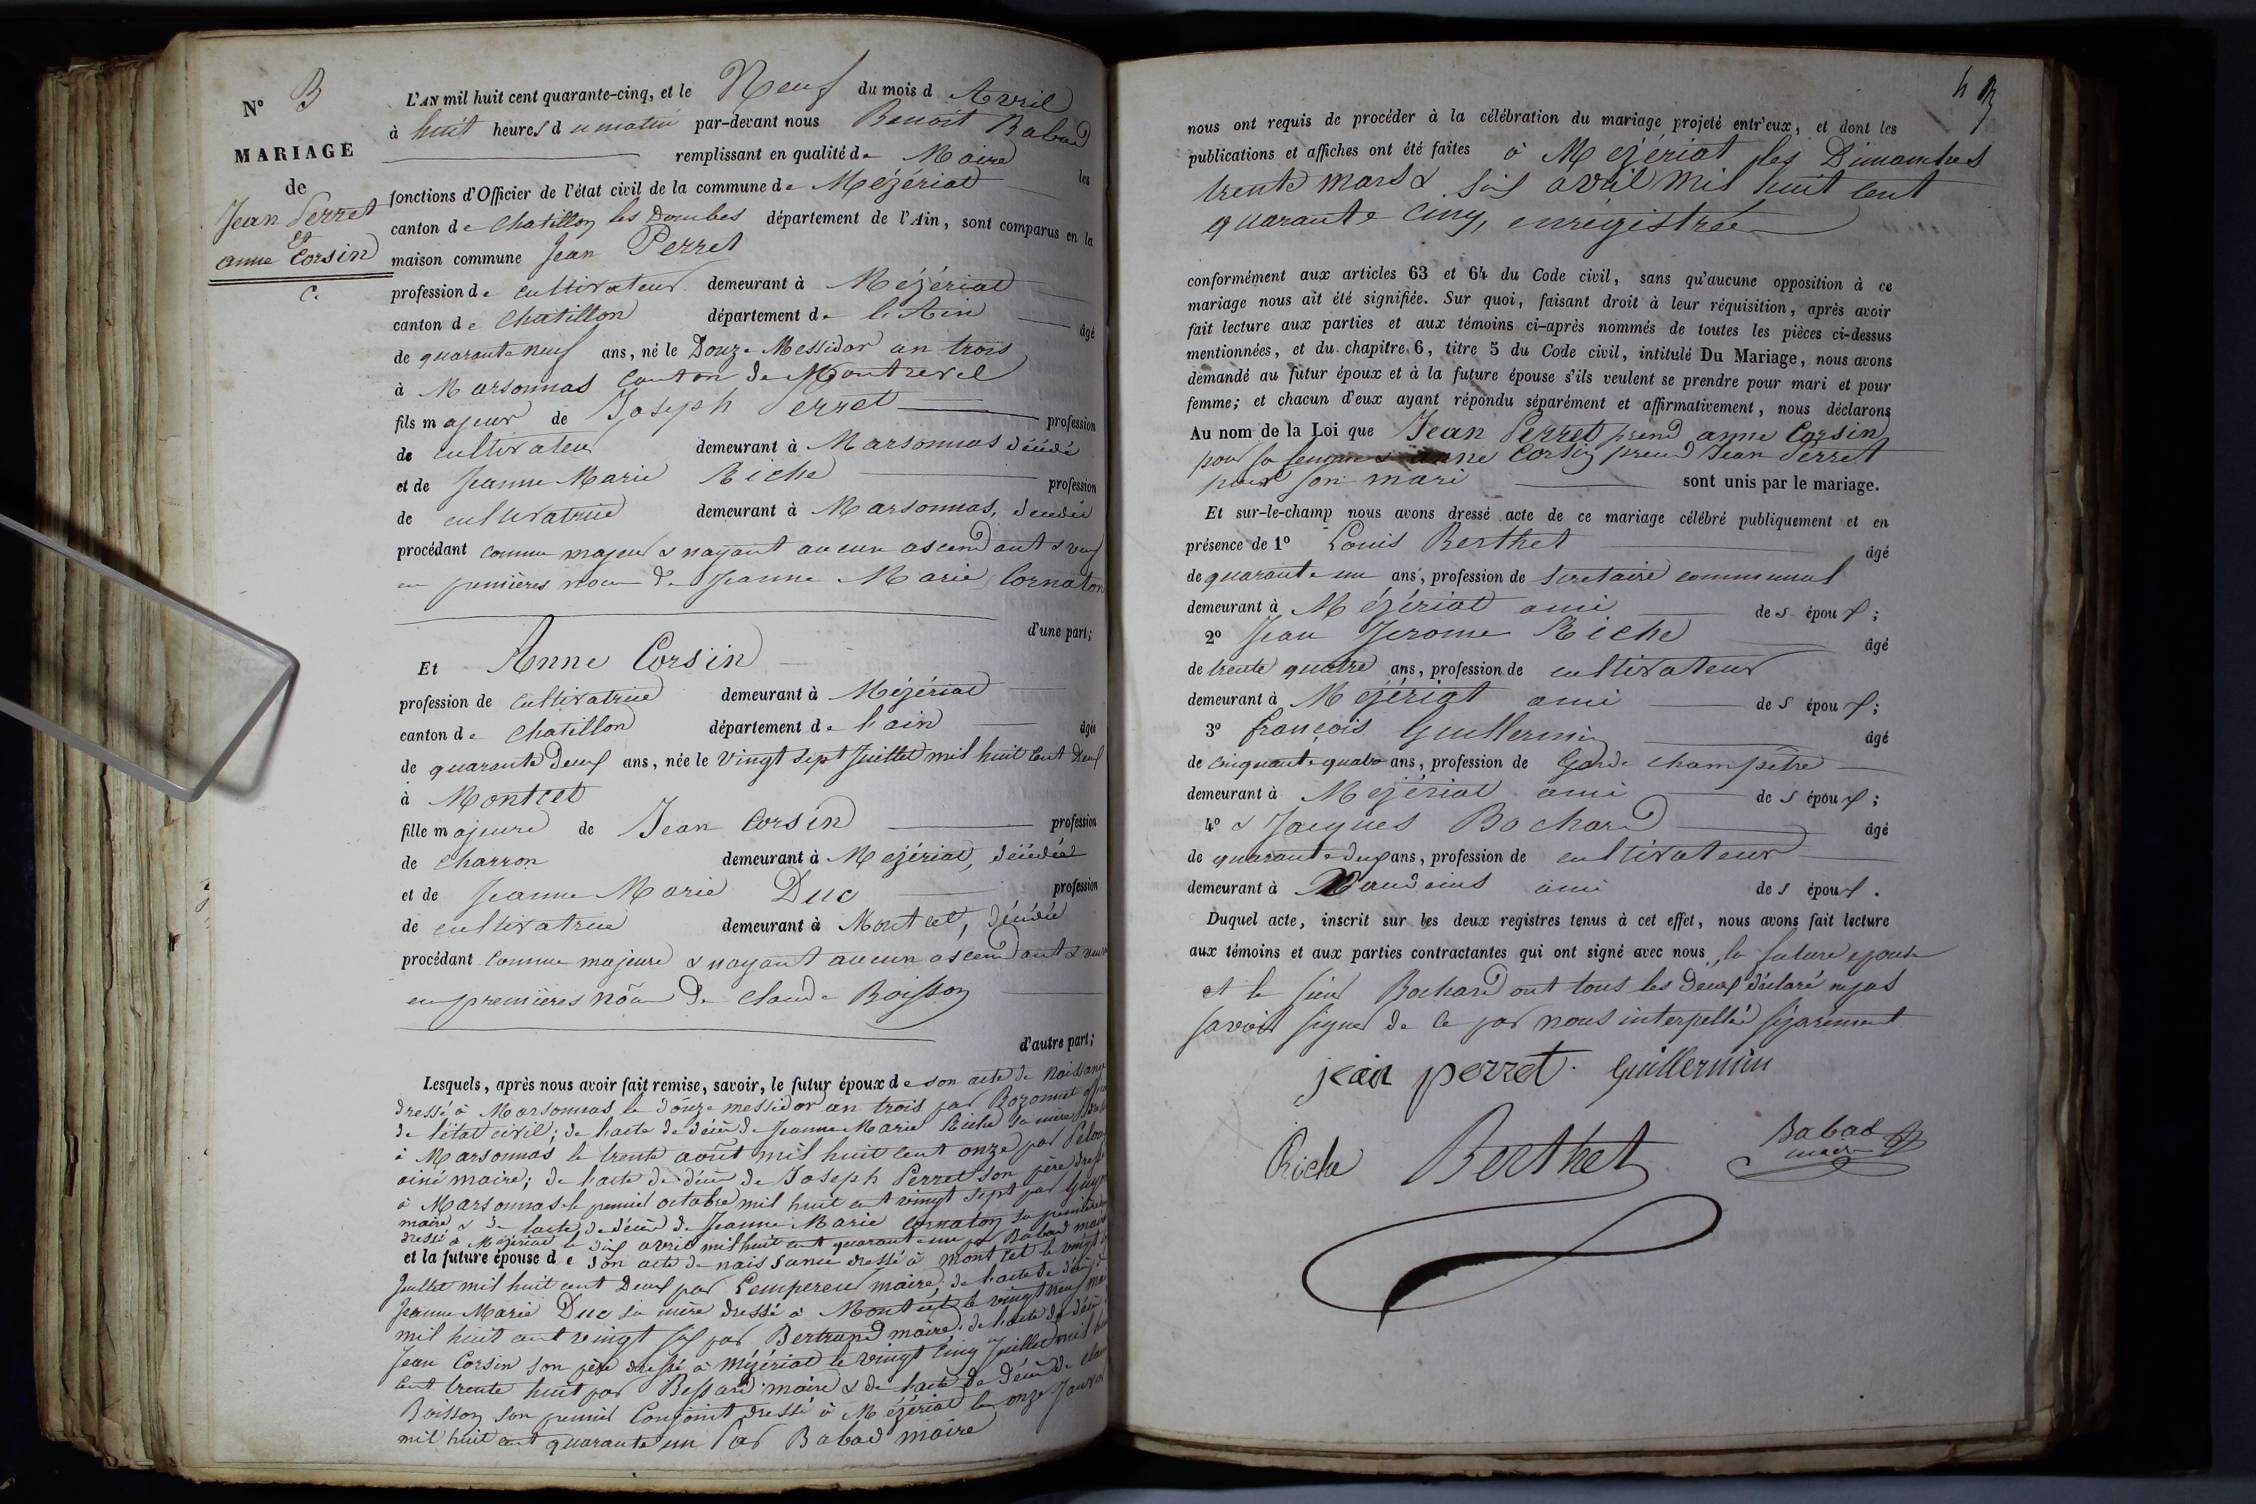 N° 3
MARIAGE
de
Jean Perret
et
anne Corsin
C.
L'AN mil huit cent quarante-cinq, et le Neuf du mois d Avril
à huit heures du matin par-devant nous Benoit Babad
remplissant en qualité de Maire les
fonctions d'Officier de l'état civil de la commune de Mézériat
canton de Chatillon les Dombes département de l'Ain, sont comparus en la
maison commune Jean Perret
profession de cultivateur demeurant à Mézériat
canton de Chatillon département de l'Ain âgé
de quarante neuf ans, né le Douze Messidor an trois
à Marsonnas Canton de Montrevel
fils majeur de Joseph Perret profession
de cultivateur demeurant à Marsonnas décédé
et de Jeanne Marie Riche profession
de cultivatrice demeurant à Marsonnas, décédée
procédant comme majeur & nayant aucun ascendant & veuf
en premières noces de Jeanne Marie Cornaton
d'une part;
Et Anne Corsin
profession de cultivatrice demeurant à Mézériat
canton de Chatillon département de l'ain âgée
de quarante deux ans, née le vingt sept Juillet mil huit Cent Deux
à Montcet
fille majeure de Jean Corsin profession
de Charron demeurant à Mézériat, décédé
et de Jeanne Marie Duc profession
de cultivatrice demeurant à Montcet, décédée
procédant comme majeure & nayant aucun ascendant & veuve
en premières nôces de Claude Boisson
d'autre part;
Lesquels, après nous avoir fait remise, savoir, le futur époux de son acte de naissance
dressé à Marsonnas le dôuze messidor an trois par Bozonnet
de l'état civil; de l'acte de décès de Jeanne Marie Riche sa mère
à Marsonnas le trente août mil huit Cent onze par
ainé maire; de l'acte de décès de Joseph Perret son père dressé
à Marsonnas le premier octobre mil huit cent vingt sept par
maire & de l'acte de décès de Jeanne Marie Cornaton sa première
dressé à Mézériat le dix avril mil huit cent quarante un par Babad maire
et la future épouse de son acte de naissance dressé à Montcet le vingt
Juillet mil huit cent Deux par Lempereur maire; de l'acte de décès de
Jeanne Marie Duc sa mère dressé à Montcet le vingt neuf
mil huit cent vingt six par Bertrand maire; de l'acte de décès
Jean Corsin son père dressé à Mézériat le vingt cinq Juillet mil huit
Cent trente huit par Bessard maire & de l'acte de décès de
Boisson son premier Conjoint dressé à Mézériat le onze Janvier
mil huit cent quarante un Par Babad maire
nous ont requis de procéder à la célébration du mariage projeté entr'eux, et dont les
publications et affiches ont été faites à Mézériat les Dimanches
trente mars & six avril mil huit Cent
quarante Cinq, enregistrée
conformément aux articles 63 et 64 du Code civil, sans qu'aucune opposition à ce
mariage nous ait été signifiée. Sur quoi, faisant droit à leur réquisition, après avoir
fait lecture aux parties et aux témoins ci-après nommés de toutes les pièces ci-dessus
mentionnées, et du chapitre 6, titre 5 du Code civil, intitulé Du Mariage, nous avons
demandé au futur époux et à la future épouse s'ils veulent se prendre pour mari et pour
femme; et chacun d'eux ayant répondu séparément et affirmativement, nous déclarons
Au nom de la Loi que Jean Perret prend anne Corsin
pour sa femme & anne Corsin prend Jean Perret
pour son mari sont unis par le mariage.
Et sur-le-champ nous avons dressé acte de ce mariage célébré publiquement et en
présence de 1° Louis Berthet âgé
de quarante un ans, profession de secretaire communal
demeurant à Mézériat ami des époux;
2° Jean Jerome Riche âgé
de trente quatre ans, profession de cultivateur
demeurant à Mézériat ami des époux;
3° françois Guillermin âgé
de cinquante quatre ans, profession de Garde champêtre
demeurant à Mézériat ami des époux;
4° & Jacques Bochard âgé
de quarante deux ans, profession de cultivateur
demeurant à Vandeins ami des époux.
Duquel acte, inscrit sur les deux registres tenus à cet effet, nous avons fait lecture
aux témoins et aux parties contractantes qui ont signé avec nous, la future epouse
et le sieur Bochard ont tous les deux déclaré ne pas
savoir signer de ce par nous interpellé séparément
jean perret. Guillermin
Riche Berthet Babad
maire